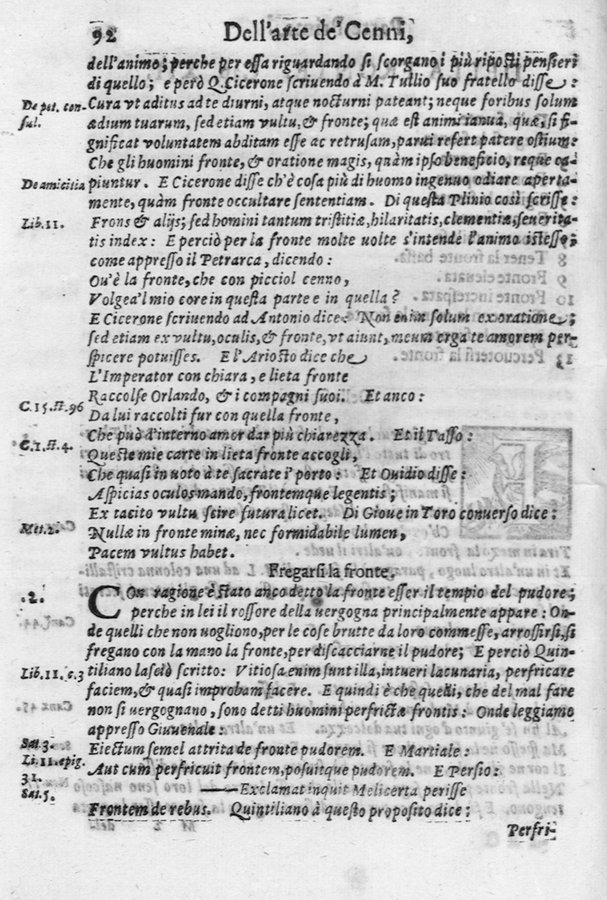 92 Dell'arte de' Cenni,
dell'animo; perche per essa riguardando si scorgano i più riposti pensieri
di quello; e però Q. Cicerone scriuendo à M. Tullio suo fratello disse:
De pet. con-
sul.
Cura vt aditus ad te diurni, atque nocturni pateant; neque foribus solum
ædium tuarum, sed etiam vultu, & fronte; quæ est animi ianua, quæ, si si-
gnificat voluntatem abditam esse ac retrusam, parui refert patere ostium:
Che gli huomini fronte, & oratione magis, quàm ipso beneficio, reque ca-
De amicitia
piuntur. E Cicerone disse ch'è cosa più di huomo ingenuo odiare aperta-
mente, quàm fronte occultare sententiam. Di questa Plinio così scrisse:
Lib. 11.
Frons & alijs; sed homini tantum tristitiæ, hilaritatis, clementiæ, seuerita-
tis index: E perciò per la fronte molte uolte s'intende l'animo istesso;
come appresso il Petrarca, dicendo:
Ou'è la fronte, che con picciol cenno,
Volgea'l mio core in questa parte e in quella?
E Cicerone scriuendo ad Antonio dice: Non enim solum ex oratione;
sed etiam ex vultu, oculis, & fronte, vt aiunt, meum erga te amorem per-
spicere potuisses. E l'Ariosto dice che
L'Imperator con chiara, e lieta fronte
Raccolse Orlando, & i compagni suoi. Et anco:
C. 15. st. 96
Da lui raccolti fur con quella fronte,
Che può d'interno amor dar più chiarezza. Et il Tasso:
C. 1. st. 4.
Queste mie carte in lieta fronte accogli,
Che quasi in uoto à te sacrate i' porto: Et Ouidio disse:
Aspicias oculos mando, frontemque legentis;
Ex tacito vultu scire futura licet. Di Gioue in Toro conuerso dice:
Met. 2.
Nullæ in fronte minæ, nec formidabile lumen,
Pacem vultus habet.
Fregarsi la fronte.
.2.
COn ragione è stato anco detto la fronte esser il tempio del pudore;
perche in lei il rossore della uergogna principalmente appare: On-
de quelli che non uogliono, per le cose brutte da loro commesse, arrossirsi, si
fregano con la mano la fronte, per discacciarne il pudore; E perciò Quin-
Lib. 11. c. 3
tiliano lasciò scritto: Vitiosa enim sunt illa, intueri lacunaria, perfricare
faciem, & quasi improbam facere. E quindi è che quelli, che del mal fare
non si uergognano, sono detti huomini perfrictæ frontis: Onde leggiamo
appresso Giuuenale:
Sat. 3.
Eiectum semel attrita de fronte pudorem. E Martiale:
Li. 11. epig.
31.
Aut cum perfricuit frontem, posuitque pudorem. E Persio:
Sat. 5.
——Exclamat inquit Melicerta perisse
Frontem de rebus. Quintiliano à questo proposito dice;
Perfri-